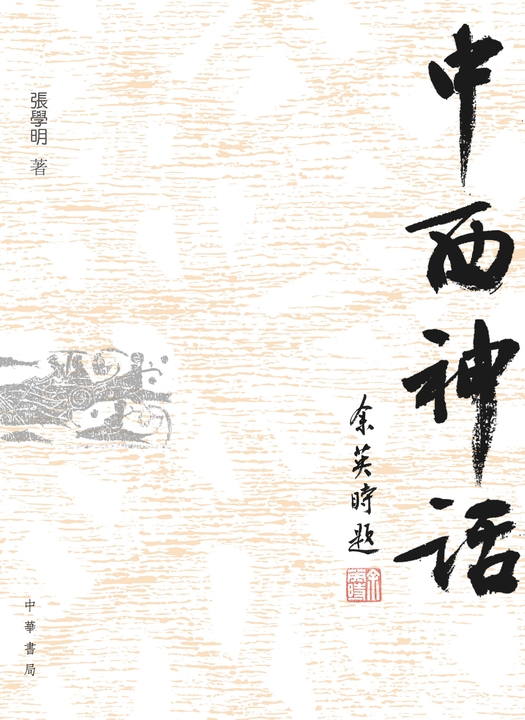 中西神話
余英時題
余英時
張學明 著
中華書局